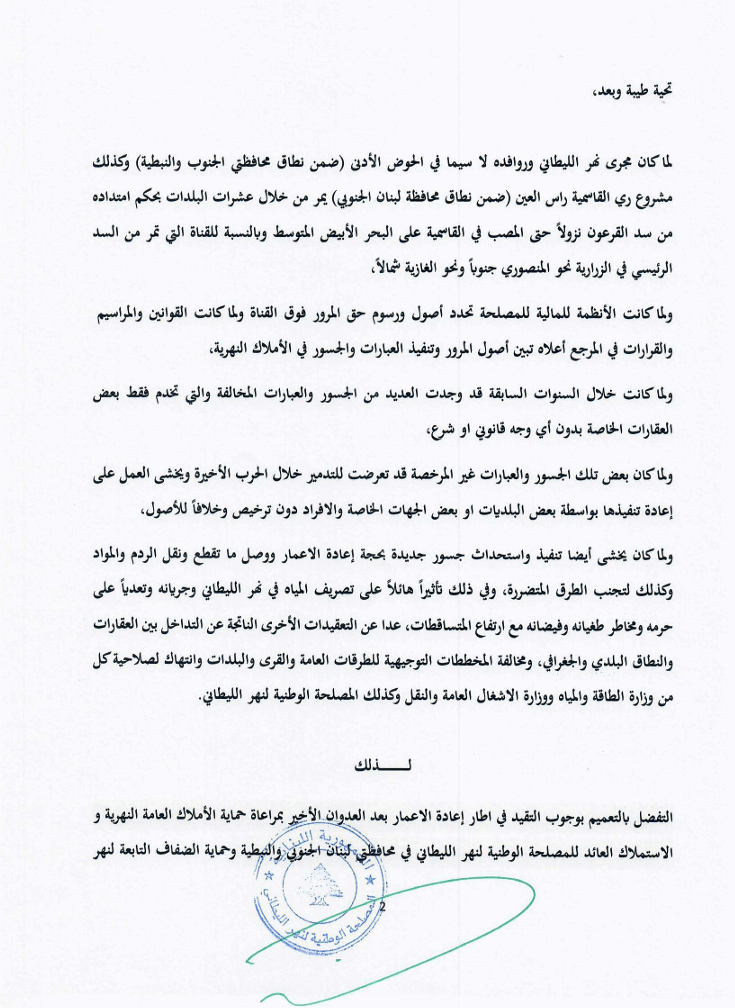 تحية طيبة وبعد،
لما كان مجرى نهر الليطاني وروافده لا سيما في الحوض الأدنى (ضمن نطاق محافظتي الجنوب والنبطية) وكذلك
مشروع ري القاسمية راس العين (ضمن نطاق محافظة لبنان الجنوبي) يمر من خلال عشرات البلدات بحكم امتداده
من سد القرعون نزولاً حتى المصب في القاسمية على البحر الأبيض المتوسط وبالنسبة للقناة التي تمر من السد
الرئيسي في الزرارية نحو المنصوري جنوباً ونحو الغازية شمالاً،
ولما كانت الأنظمة للمالية للمصلحة تحدد أصول ورسوم حق المرور فوق القناة ولما كانت القوانين والمراسيم
والقرارات في المرجع أعلاه تبين أصول المرور وتنفيذ العبارات والجسور في الأملاك النهرية،
ولما كانت خلال السنوات السابقة قد وجدت العديد من الجسور والعبارات المخالفة والتي تخدم فقط بعض
العقارات الخاصة بدون أي وجه قانوني او شرع،
ولما كان بعض تلك الجسور والعبارات غير المرخصة قد تعرضت للتدمير خلال الحرب الأخيرة ويخشى العمل على
إعادة تنفيذها بواسطة بعض البلديات او بعض الجهات الخاصة والافراد دون ترخيص وخلافاً للأصول،
ولما كان يخشى أيضا تنفيذ واستحداث جسور جديدة بحجة إعادة الاعمار ووصل ما تقطع ونقل الردم والمواد
وكذلك لتجنب الطرق المتضررة، وفي ذلك تأثيراً هائلاً على تصريف المياه في نهر الليطاني وجريانه وتعدياً على
حرمه ومخاطر طغيانه وفيضانه مع ارتفاع المتساقطات، عدا عن التعقيدات الأخرى الناتجة عن التداخل بين العقارات
والنطاق البلدي والجغرافي، ومخالفة المخططات التوجيهية للطرقات العامة والقرى والبلدات وانتهاك لصلاحية كل
من وزارة الطاقة والمياه ووزارة الاشغال العامة والنقل وكذلك المصلحة الوطنية لنهر الليطاني.
لــــــذلك
التفضل بالتعميم بوجوب التقيد في اطار إعادة الاعمار بعد العدوان الأخير بمراعاة حماية الأملاك العامة النهرية و
الاستملاك العائد للمصلحة الوطنية لنهر الليطاني في محافظتي لبنان الجنوبي والنبطية وحماية الضفاف التابعة لنهر
الجمهورية اللبنانية
المصلحة الوطنية لنهر الليطاني
2